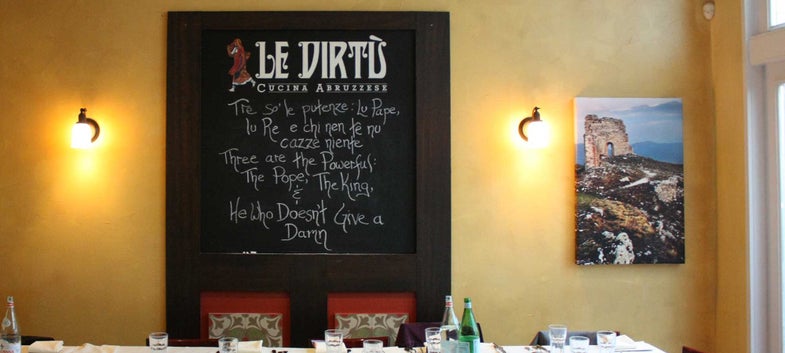 LE VIRTÙ
CUCINA ABRUZZESE
Tre so' le putenze: Lu Pape,
lu Re e chi nen tè nu
cazze niente
Three are the Powerful:
The Pope, The King,
&
He Who Doesn't Give a
Damn